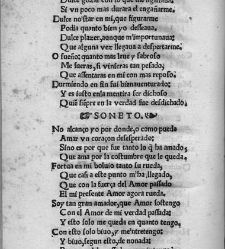 Dulce gozar con lo que
Si vn poco mas durara el engañarme.
Dulce no star en mi, que figurarme
Podia quanto bien yo desseaua,
Dulce plazer, aunque m'importunaua;
Que alguna vez llegaua a despertarme.
O sueño; quanto mas leue y sabroso
Me fueras, si vinieras tan pesado;
Que assentaras en mi con mas reposo.
Durmiendo en fin fui bienauenturado;
Y es justo en la mentira ser dichoso
Quiẽ siẽpre en la verdad fue desdichado.
SONETO.
No alcanço yo por donde, o como pueda
Amar vn coraçon desesperado;
Sino es por que fue tanto lo q̃ ha amado
Que ama por la costumbre que le queda.
a mi boluio tanto su rueda,
Que casi a este punto m'ha llegado,
Que con la fuerça del Amor passado
El mi presente Amor agora rueda.
Soy tan gran amador, que Amor sostengo
Con el Amor de mi verdad passada;
Y esto solo me queda en quanto tengo,
Con esto solo biuo, y m'entretengo:
Y biuo, segun esto, de nonada: